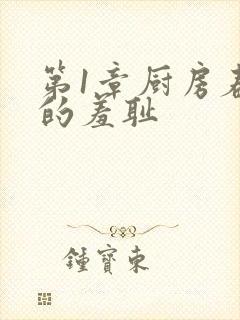 第1章厨房
的羞耻
鍾寶東